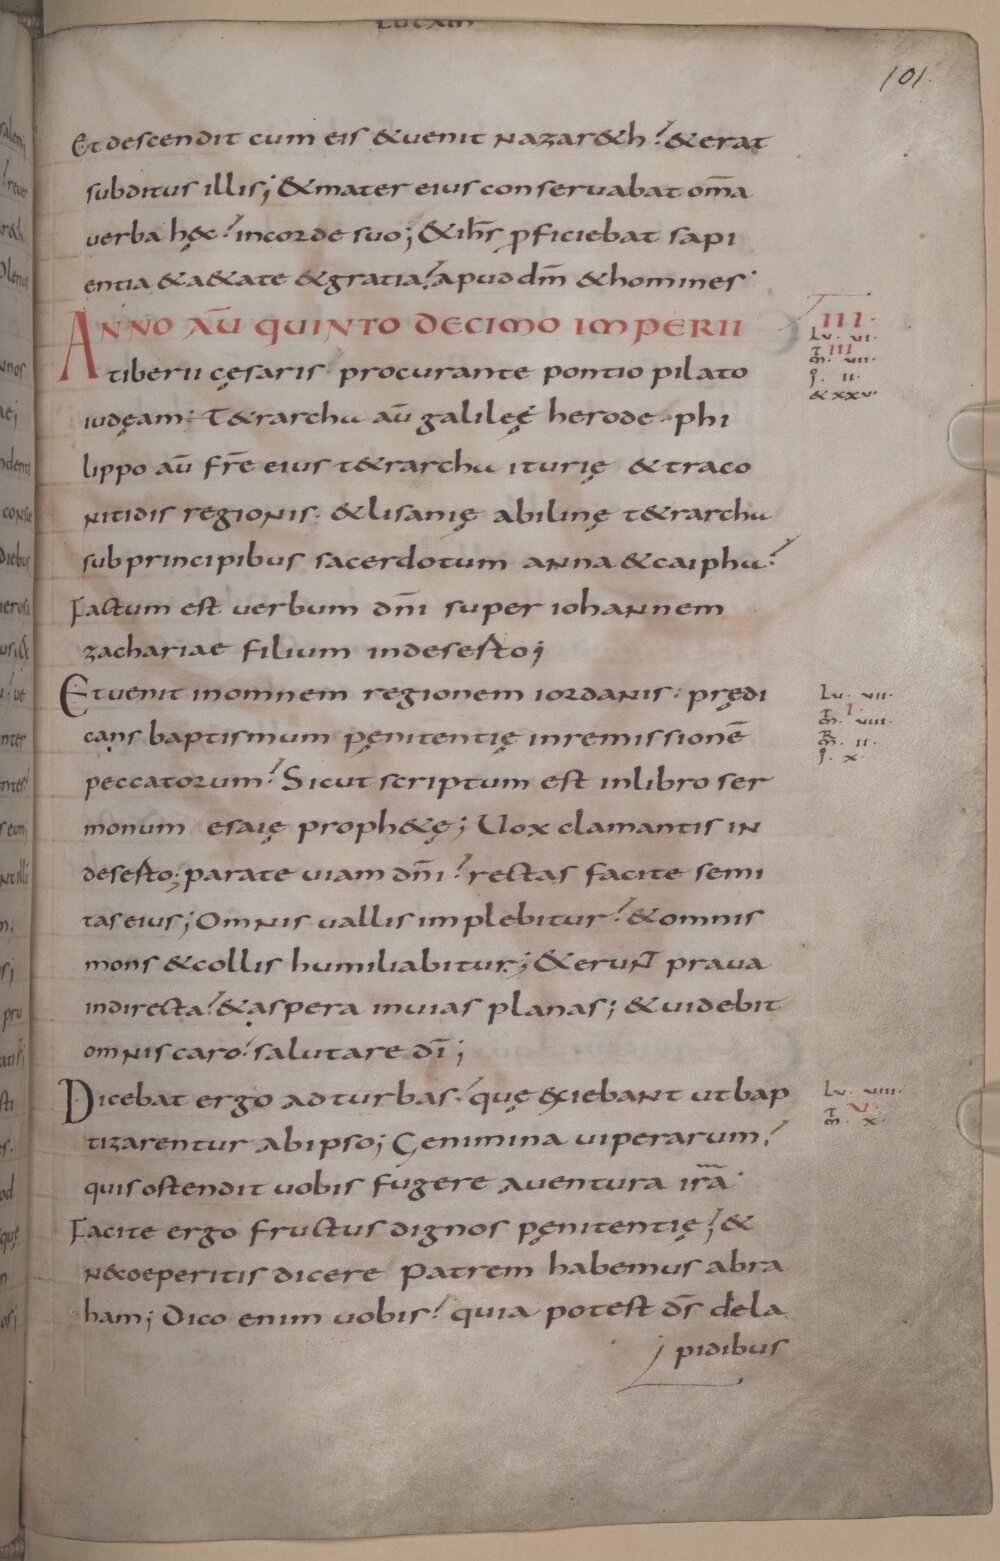 LUCAM
101.
Et descendit cum eis & uenit nazar&h? & erat
subditus illis; & mater eius conseruabat om̅a
uerba hęc? in corde suo; & ih̅s p̱ficiebat sapi
entia & a&ate & gratia? apud dm̅ & homines·
ANNO AU̅ QUINTO DECIMO IMPERII
tiberii cęsaris· procurante pontio pilato
iudęam; T&rarcha au̅ galileę herode· phi
lippo au̅ fr̅e eius t&rarcha iturię & traco
nitidis regionis· & lisanię abilinę t&rarcha
sub principibus sacerdotum anna & caipha?
Factum est uerbum dn̅i super iohannem
zachariae filium in deserto;
Et uenit in omnem regionem iordanis· prędi
cans baptismum pęnitentię in remissione̅
peccatorum? Sicut scriptum est in libro ser
monum esaię proph&ę; Uox clamantis in
deserto; parate uiam dn̅i? rectas facite semi
tas eius; Omnis uallis implebitur? & omnis
mons & collis humiliabitur; & erunt praua
in directa? & aspera in uias planas; & uidebit
omnis caro? salutare di̅;
Dicebat ergo ad turbas? quę exiebant ut bap
tizarentur ab ipso; Genimina uiperarum?
quis ostendit uobis fugere a uentura ira̅·
Facite ergo fructus dignos pęnitentię? &
ne coeperitis dicere Patrem habemus abra
ham; Dico enim uobis? quia potest ds̅ de la
pidibus
III·
Lu· VI·
III
m̅· VII·
I· II·
& XXV·
Lu· VII·
I·
m̅· VIII·
m̅· II·
I· X·
Lu· VIII·
V·
m̅· X·